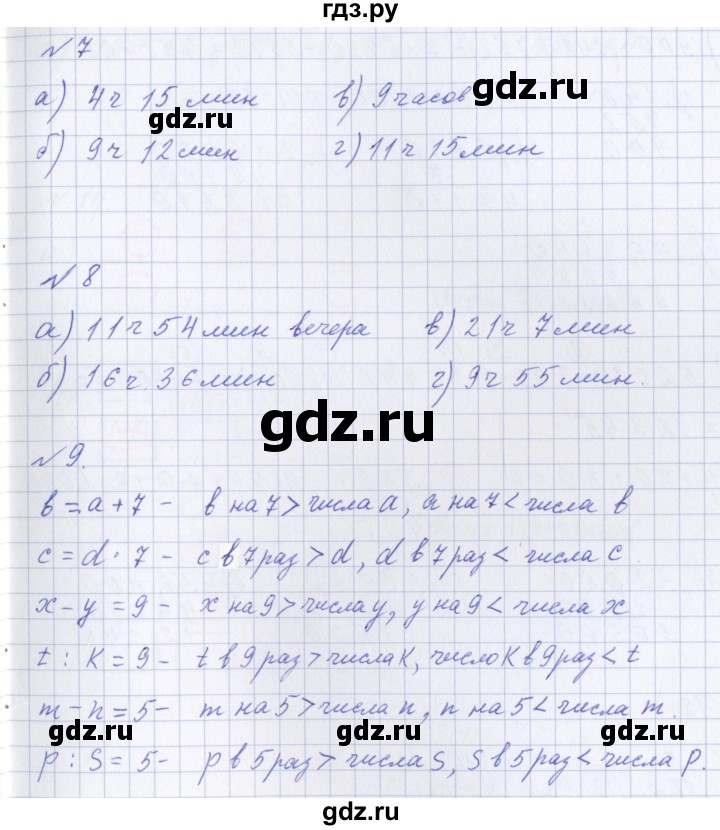 гдз.ру
№7
а) 4ч 15 мин в) 9 часов
gdz.ru
gdz.ru
б) 9ч 12 мин г) 11ч 15 мин
№8
а) 11ч 54 мин вечера в) 21ч 7 мин
б) 16ч 36 мин г) 9ч 55 мин.
gdz.ru
№9.
b = a + 7 - b на 7 > числа a, a на 7 < числа b
c = d · 7 - c в 7 раз > d, d в 7 раз < числа c
x - y = 9 - x на 9 > числа y, y на 9 < числа x
t : K = 9 - t в 9 раз > числа K, число K в 9 раз < t
m - n = 5 - m на 5 > числа n, n на 5 < числа m.
gdz.ru
gdz.ru
p : S = 5 - p в 5 раз > числа S, S в 5 раз < числа p.
gdz.ru